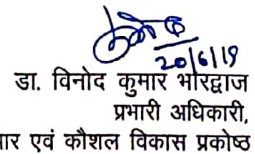 20/6/19
डा. विनोद कुमार भारद्वाज
प्रभारी अधिकारी,
एवं कौशल विकास प्रकोष्ठ